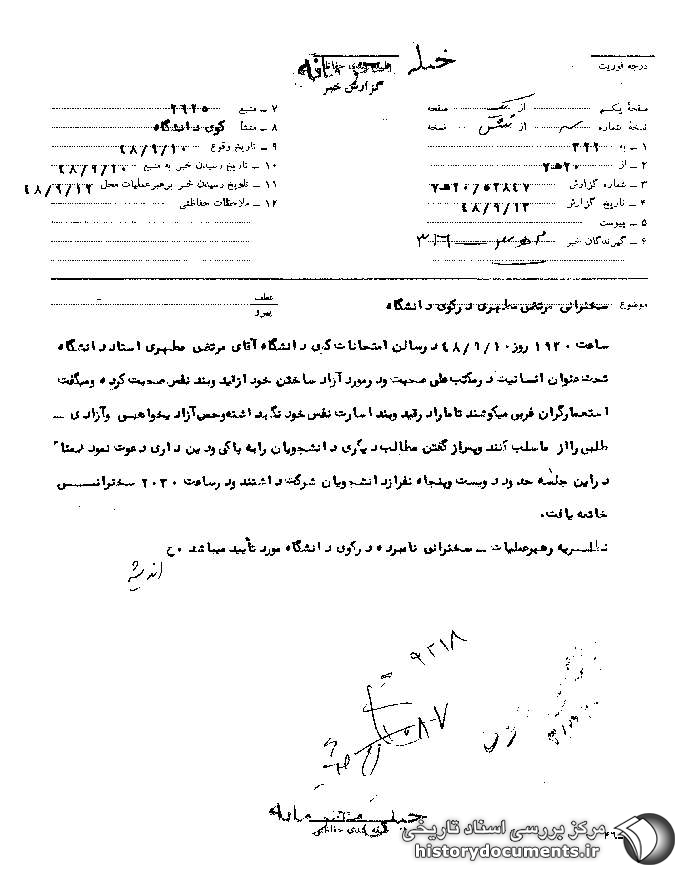 خیلی محرمانه
طبقه‌بندی حفاظتی
گزارش خبر
درجه فوریت
صفحهٔ یکم از یک صفحه
نسخهٔ شماره از شش نسخه
۱ ـ به ۳۲۲
۲ ـ از ۲۰هـ۷
۳ ـ شماره گزارش ۷هـ۲۰/۵۲۸۴۷
۴ ـ تاریخ گزارش ۴۸/۹/۱۳
۵ ـ پیوست
۶ ـ گیرندگان خبر ۳۱۶
۷ ـ منبع ۲۶۲۵
۸ ـ منشأ کوی دانشگاه
۹ ـ تاریخ وقوع ۴۸/۹/۱۰
۱۰ ـ تاریخ رسیدن خبر به منبع ۴۸/۹/۱۰
۱۱ ـ تاریخ رسیدن خبر برهبر عملیات محل ۴۸/۹/۱۲
۱۲ ـ ملاحظات حفاظتی
موضوع سخنرانی مرتضی مطهری در کوی دانشگاه
عطف
پیرو
ساعت ۱۹۳۰ روز ۴۸/۹/۱۰ در سالن امتحانات کوی دانشگاه آقای مرتضی مطهری استاد دانشگاه
تحت عنوان انسانیت در مکتب علی صحبت و در مورد آزاد ساختن خود از قید و بند نفس صحبت کرده و میگفت
استعمارگران غربی میکوشند تا ما را در قید و بند اسارت نفس خود نگهداشته و حس آزاد یخواهی و آزادی ـ
طلبی را از ما سلب کنند و پس از گفتن مطالب دیگری دانشجویان را به پاکی و دین داری دعوت نمود ضمناً
در این جلسه حدود دویست و پنجاه نفر از دانشجویان شرکت داشتند و در ساعت ۲۰۳۰ سخنرانـی
خاتمه یافت.
نظریه رهبر عملیات ـ سخنرانی نامبرده در کوی دانشگاه مورد تأیید میباشد. ح
اندیشه
۹۲۱۸
خیلی محرمانه
طبقه‌بندی حفاظتی
مرکز بررسی اسناد تاریخی
historydocuments.ir